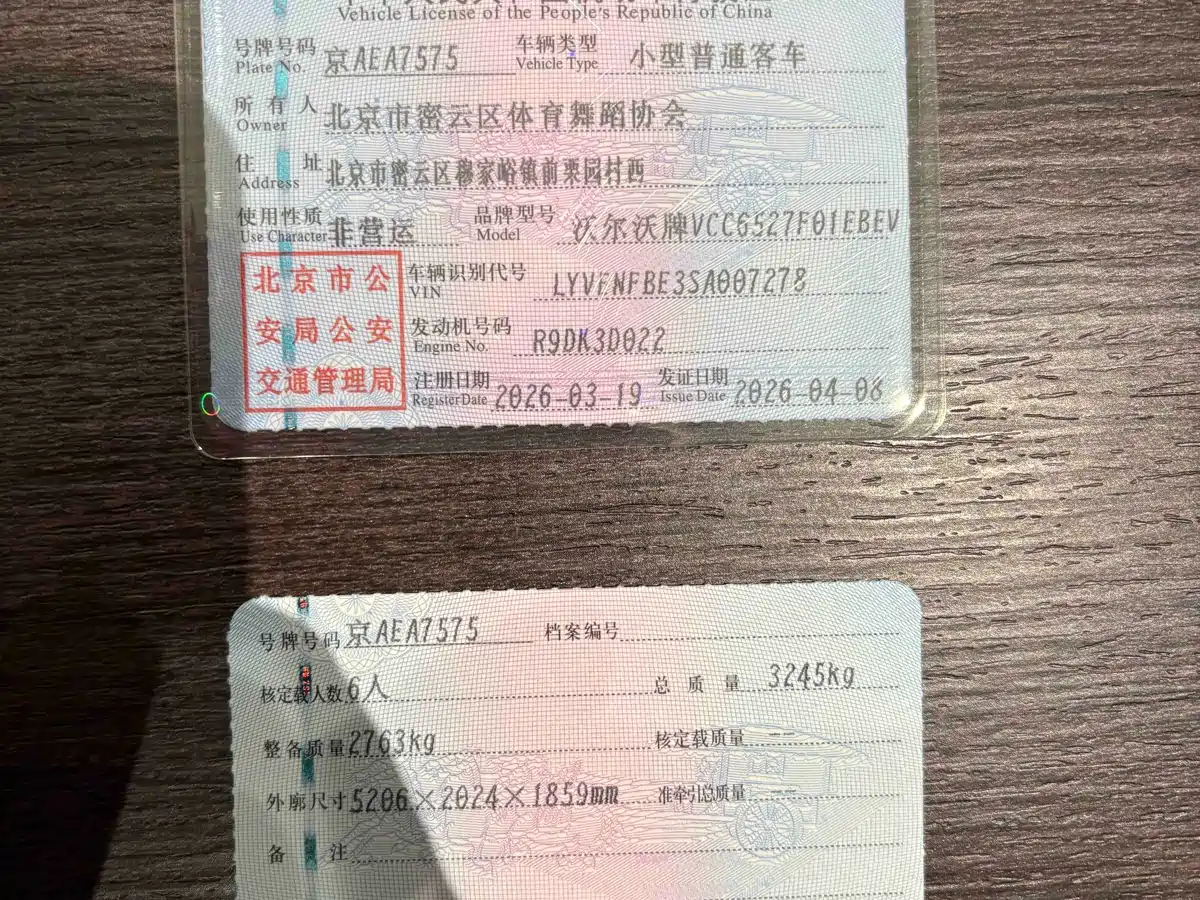 Vehicle License of the People's Republic of China
号牌号码 京AEA7575 车辆类型 小型普通客车
Plate No. Vehicle Type
所有人 北京市密云区体育舞蹈协会
Owner
住址 北京市密云区穆家峪镇前栗园村西
Address
使用性质 非营运 品牌型号 沃尔沃牌VCC6527F01EBEV
Use Character Model
北京市公
安局公安
交通管理局
车辆识别代号 LYVFNFBE3SA007278
VIN
发动机号码 R9DK3D022
Engine No.
注册日期 2026-03-19 发证日期 2026-04-08
Register Date Issue Date
号牌号码 京AEA7575 档案编号
核定载人数 6人 总质量 3245kg
整备质量 2763kg 核定载质量 --
外廓尺寸 5206×2024×1859mm 准牵引总质量 --
备注